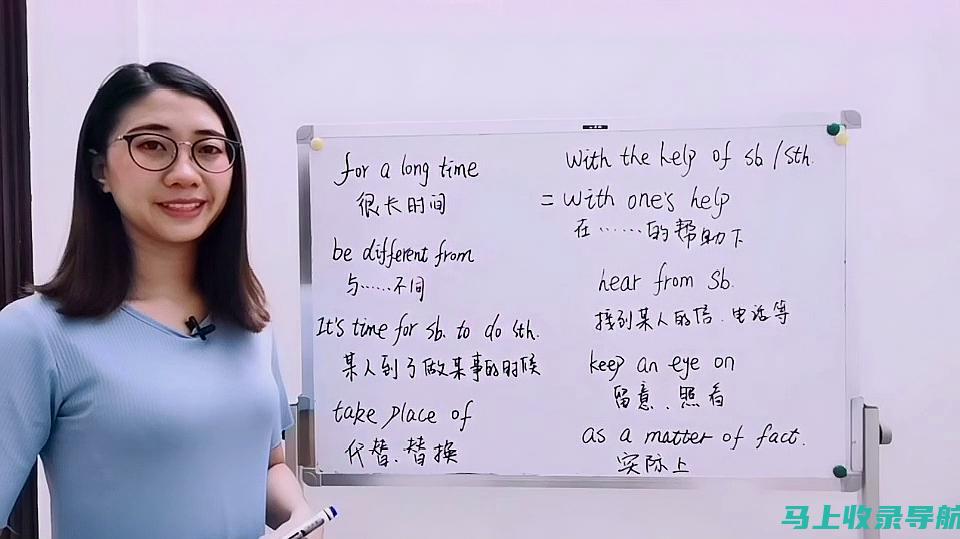 for a long time
很长时间
be different from
与……不同
It's time for sb. to do sth.
某人到了做某事的时候
take place of
代替、替换
With the help of sb/sth.
= with one's help
在……的帮助下
hear from sb.
接到某人的信、电话等
keep an eye on
留意、照看
as a matter of fact.
实际上
马上收录导航